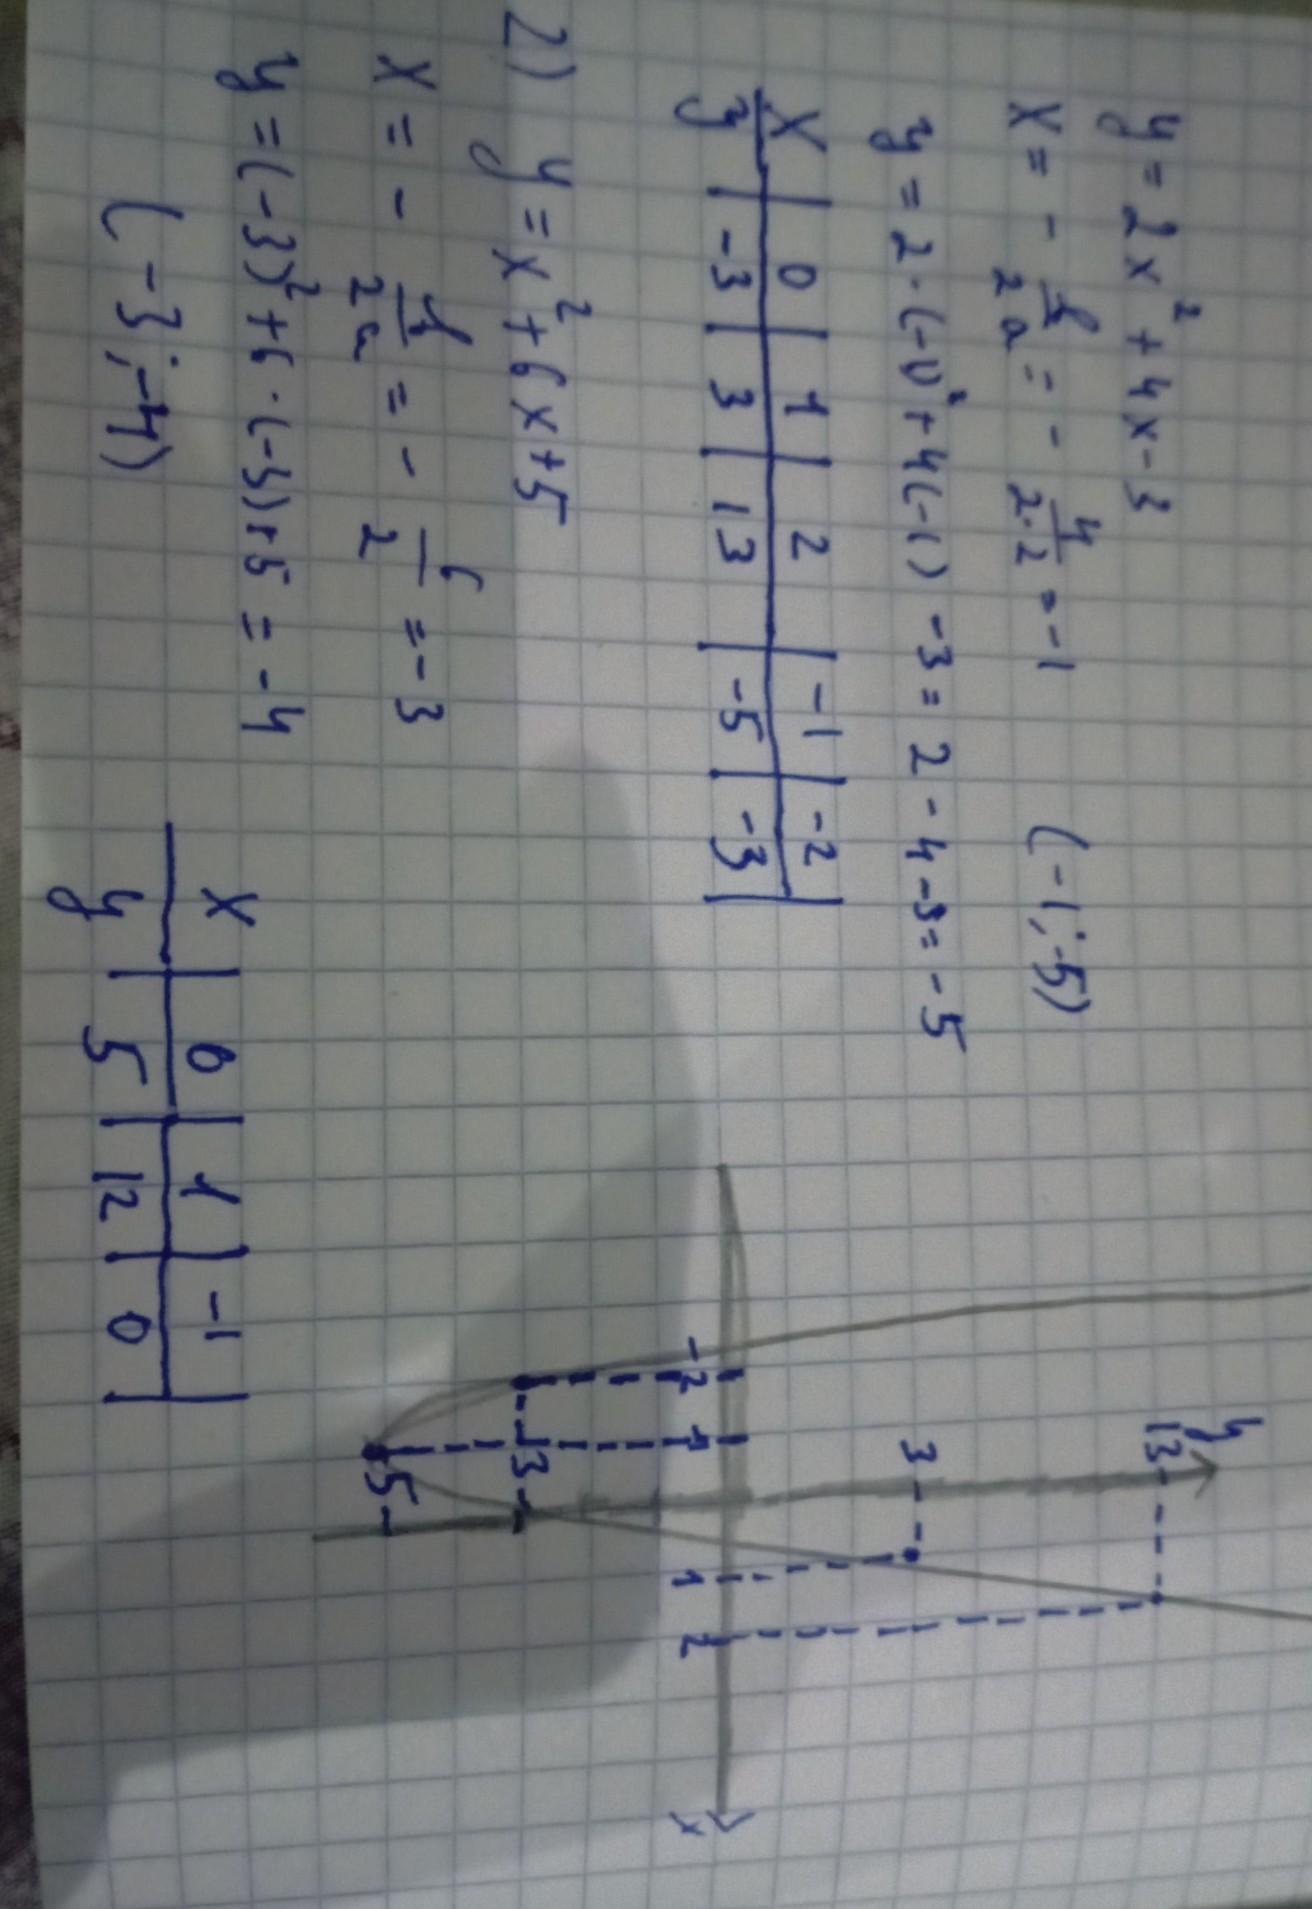 y = 2x² + 4x - 3
x = - b/2a = - 4/2·2 = -1 (-1; -5)
y = 2·(-1)² + 4(-1) - 3 = 2 - 4 - 3 = -5
x | 0 | 1 | 2 | -1 | -2 |
y | -3 | 3 | 13 | -5 | -3 |
y
13
3
-2 -1 1 2 x
-3
-5
2) y = x² + 6x + 5
x = - b/2a = - 6/2 = -3
y = (-3)² + 6·(-3) + 5 = -4
(-3; -4)
x | 0 | 1 | -1 |
y | 5 | 12 | 0 |